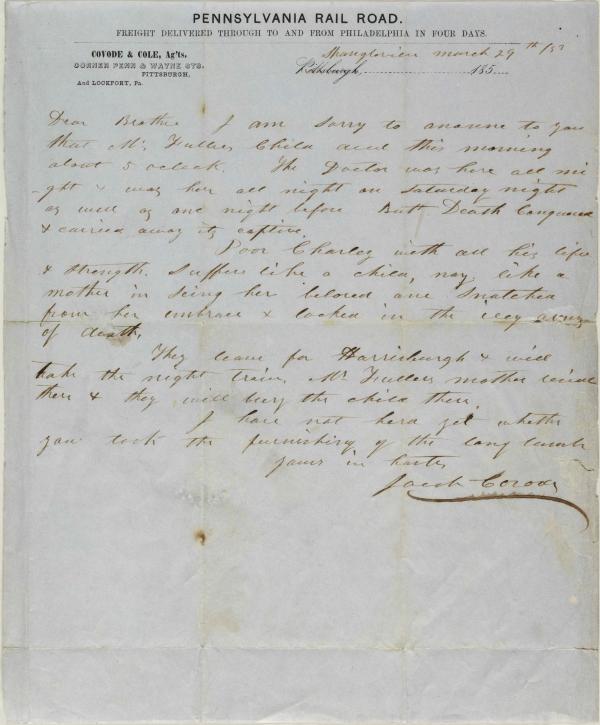 PENNSYLVANIA RAIL ROAD.
FREIGHT DELIVERED THROUGH TO AND FROM PHILADELPHIA IN FOUR DAYS.
COVODE & COLE, Ag'ts,
CORNER PENN & WAYNE STS.
PITTSBURGH,
And LOCKPORT, Pa.
march 29th
Pittsburgh, 185
Dear Brother I am sorry to to you
that Mr Fullers Child died this morning
about 5 oclock. The Doctor was here all ni
-ght & was her all night on Saturday night
as well as one night before Butt Death Conquered
& carried away its captive.
Poor Charley with all his life
& strength. Suffers like a child, nay, like a
mother in seing her beloved one snatched
from her embrace & locked in the icey arms
of death.
They leave for Harrisburgh & will
take the night train, Mr Fullers mother
there & they will bury the child there,
I have not herd yet whether
you took the furnishing of the long
yours in haste
Jacob Covode